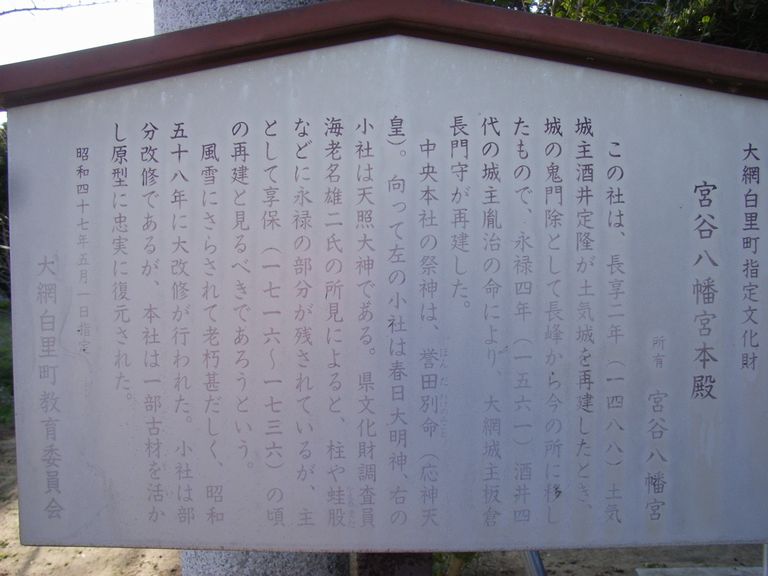 大網白里町指定文化財
宮谷八幡宮本殿
所有　宮谷八幡宮
この社は、長享二年（一四八八）土気
城主酒井定隆が土気城を再建したとき、
城の鬼門除として長峰から今の所に移し
たもので、永禄四年（一五六一）酒井四
代の城主胤治の命により、大網城主板倉
長門守が再建した。
中央本社の祭神は、誉田別命（応神天
皇）。向って左の小社は春日大明神、右の
小社は天照大神である。県文化財調査員
海老名雄二氏の所見によると、柱や蛙股
などに永禄の部分が残されているが、主
として享保（一七一六〜一七三六）の頃
の再建と見るべきであろうという。
風雪にさらされて老朽甚だしく、昭和
五十八年に大改修が行われた。小社は部
分改修であるが、本社は一部古材を活か
し原型に忠実に復元された。
昭和四十七年五月一日指定
大網白里町教育委員会